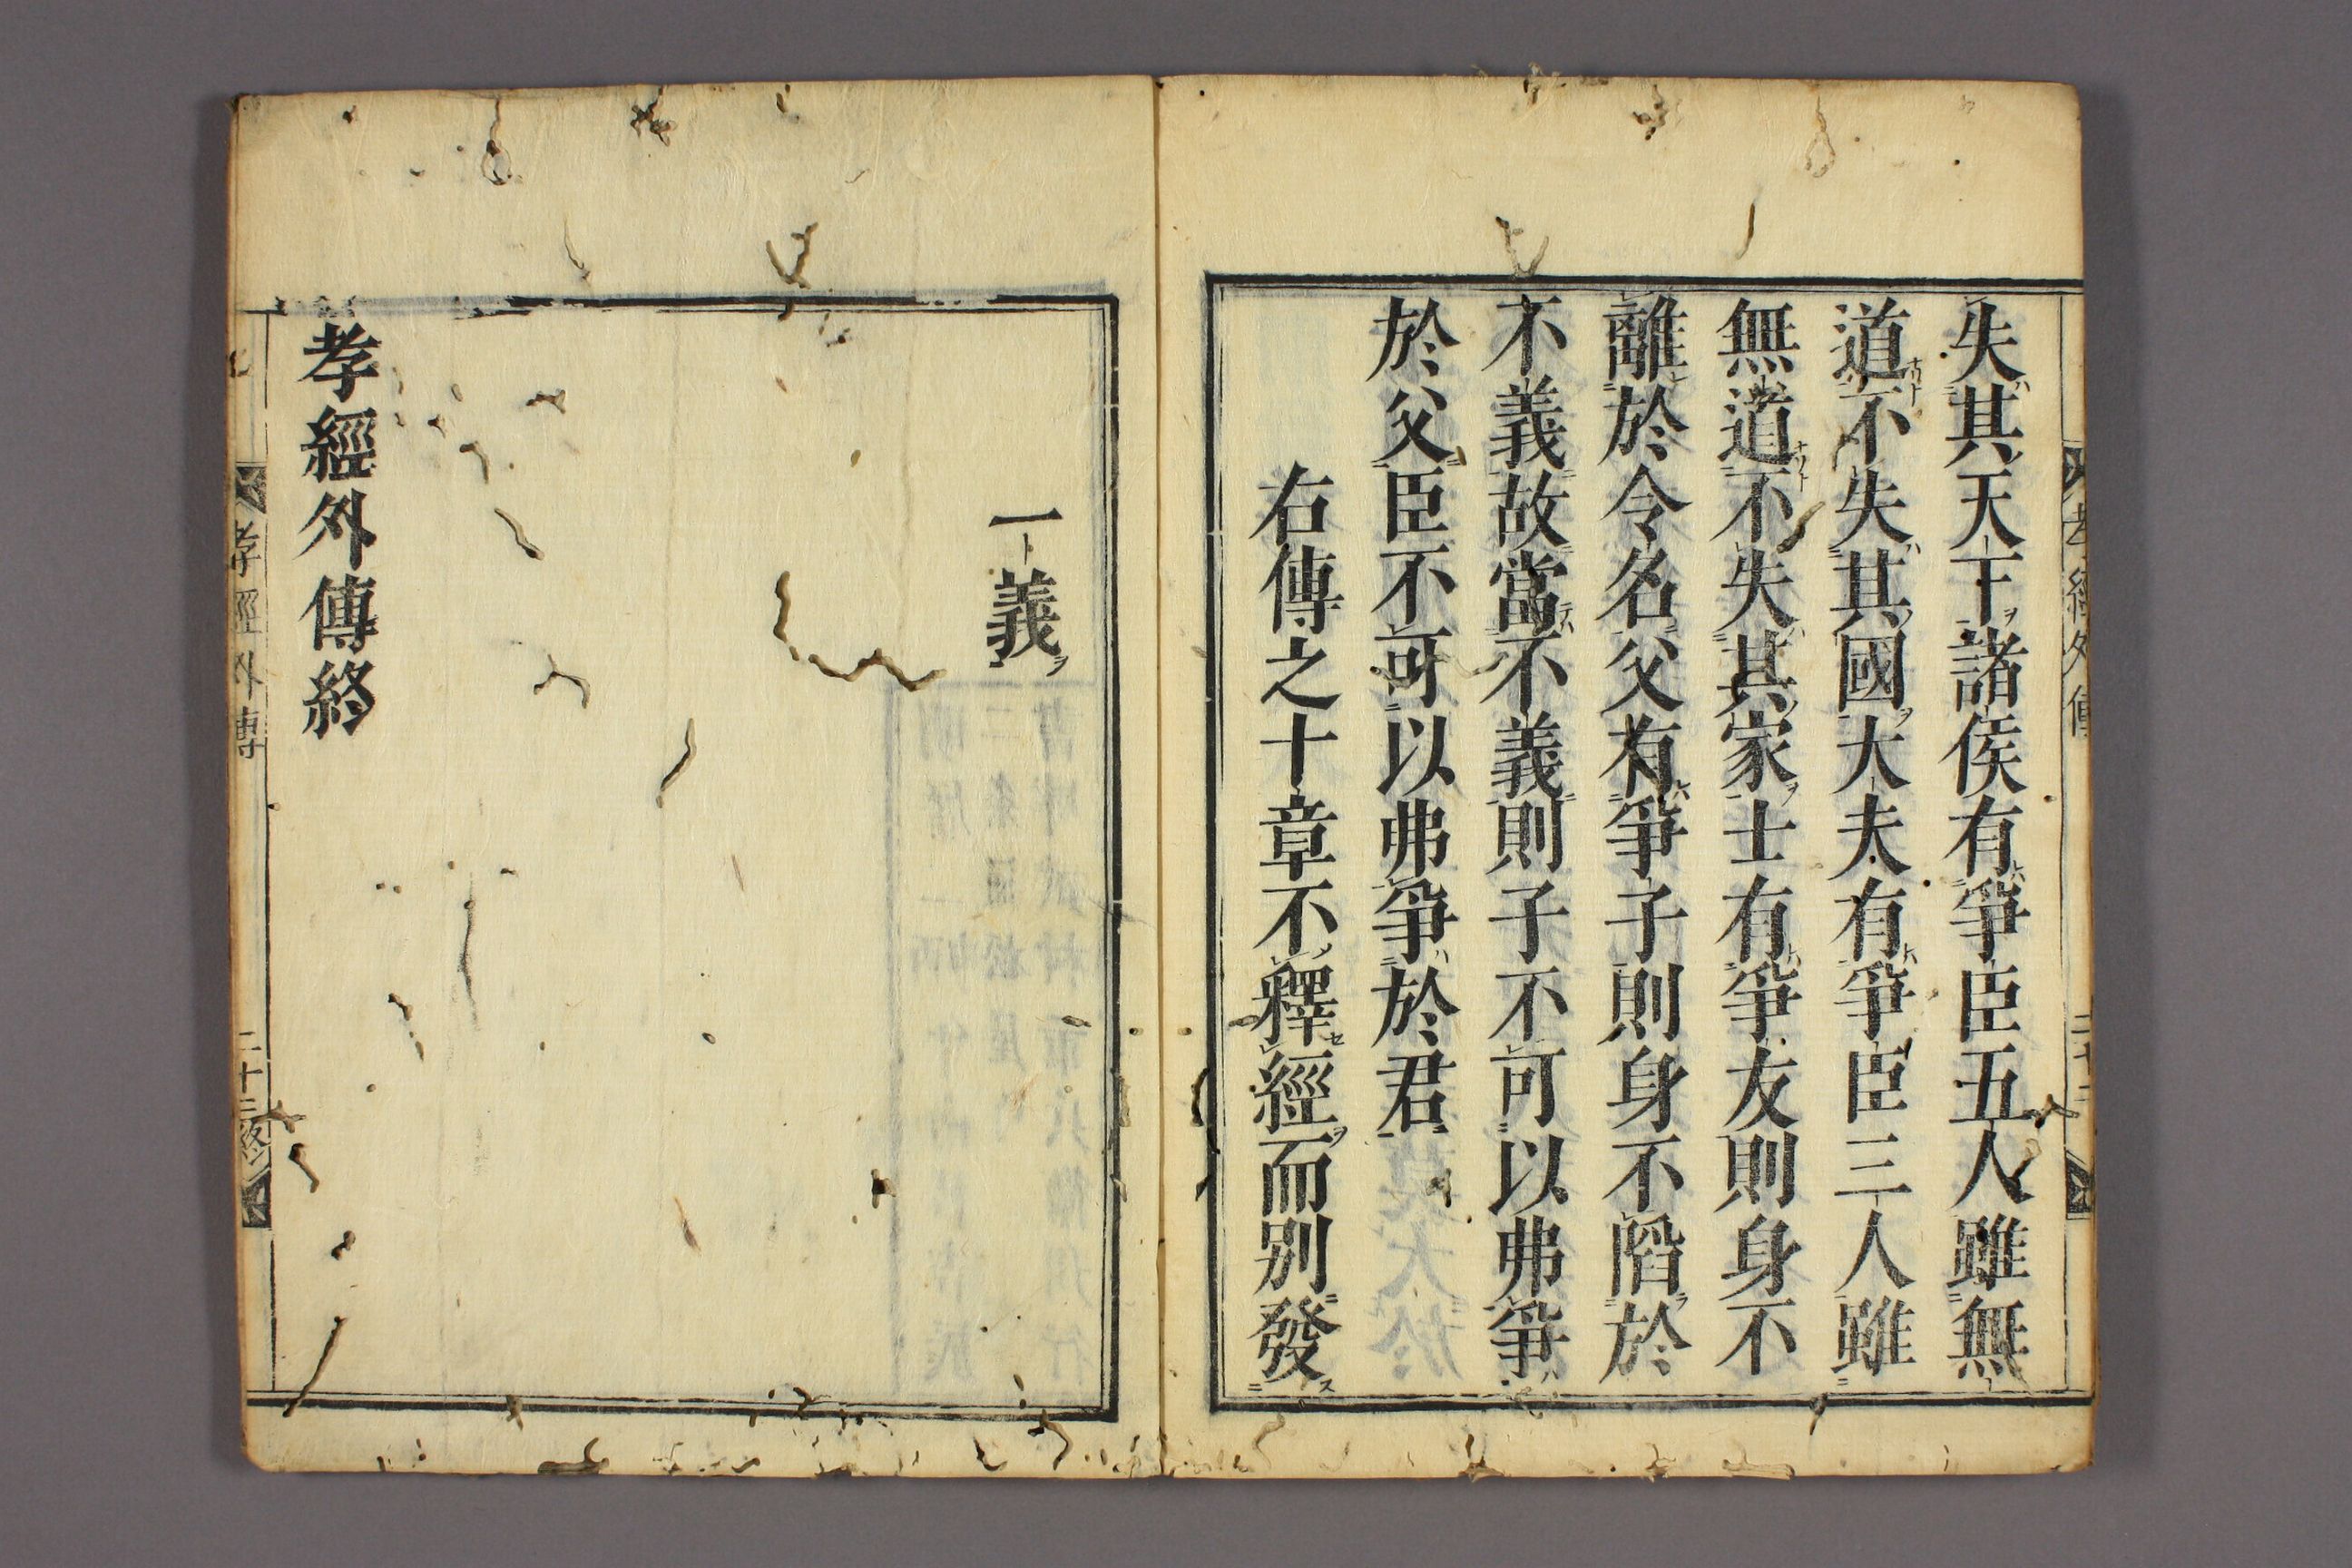 失其天下諸侯有爭臣五人雖無
道不失其國大夫有爭臣三人雖
無道不失其家士有爭友則身不
離於令名父有爭子則身不陷於
不義故當不義則子不可以弗爭
於父臣不可以弗爭於君
右傳之十章不釋經而別發
一義
孝經外傳終
孝經外傳
二十三終